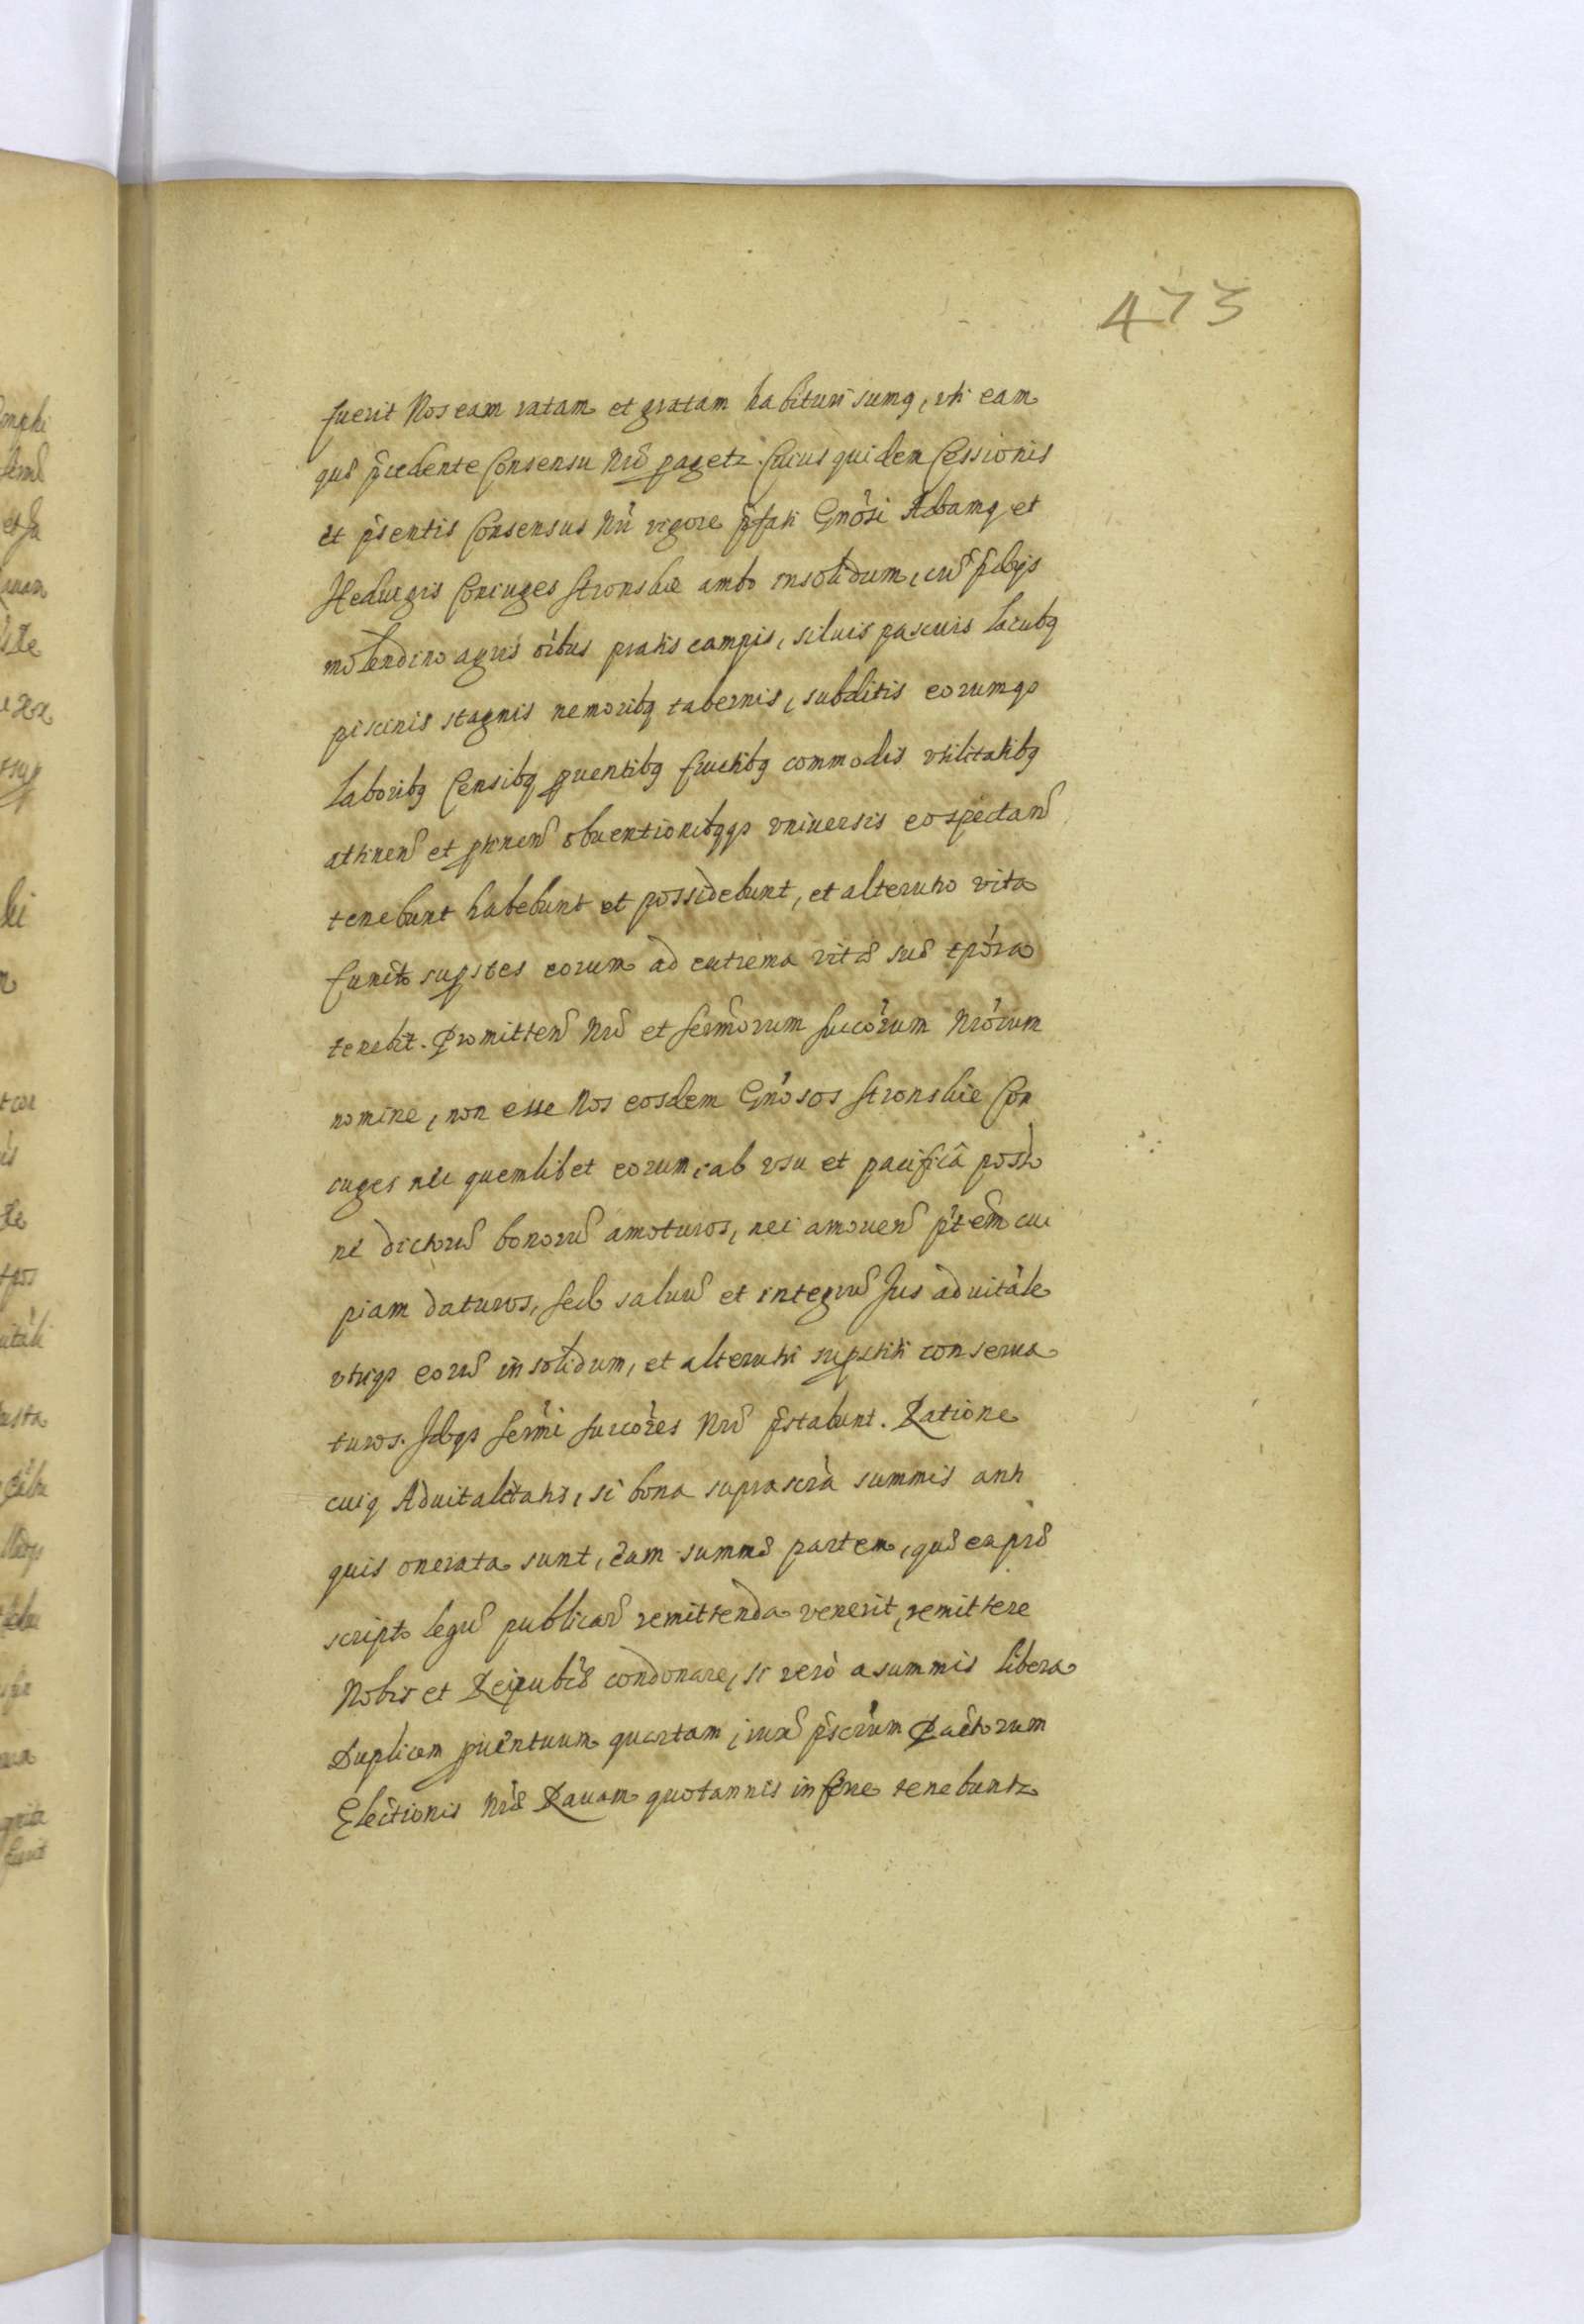 473
fuerit Nos eam ratam et gratam habituri sumq, uti eam
quæ p̃cedente Consensu Nrõ pagetz. Cuius quidem Cessionis
et p̃sentis Consensus Nri vigore p̃fati Gnõsi Adamq et
Heduigis Coniuges Stronskie ambo insolidum, cum p̃dijs
molendino agris oĩbus pratis campis, siluis pascuis lacubq
piscinis stagnis nemoribq tabernis, subditis eorumqs
laboribq Censibq puentibq fructibq commodis vtilitatibq
attineñ et ptineñ obuentionibqqs vniuersis eo spectañ
tenebunt habebunt et possidebunt, et alterutro vita
functo supstes eorum ad extrema vitæ suæ tpõra
tenebit. Promitteñ Nrõ et Sermõrum Succõrum Nrõrum
nomine, non esse Nos eosdem Gnõsos Stronskie Con
iuges nec quemlibet eorum, ab vsu et pacifica possio
ne dictorũ bonorũ amoturos, nec amoueñ ptẽm cui
piam daturos, sed saluũ et integrũ Jus aduitale
vtriqs eorũ in solidum, et alterutri supstiti conserua
turos. Idqs Sermi Succõres Nrĩ p̃stabunt. Ratione
cuiq Aduitalitatis, si bona suprascrã summis anti
quis onerata sunt, eam summæ partem, quæ ex præ
scripto legũ publicarũ remittenda venerit, remittere
Nobis et Reipublcæ condonare, si verò a summis libera
Duplicem puentuum quartam, iuxa p̃scrum Pactorum
Electionis Nræ Rauam quotannis inferre tenebuntz